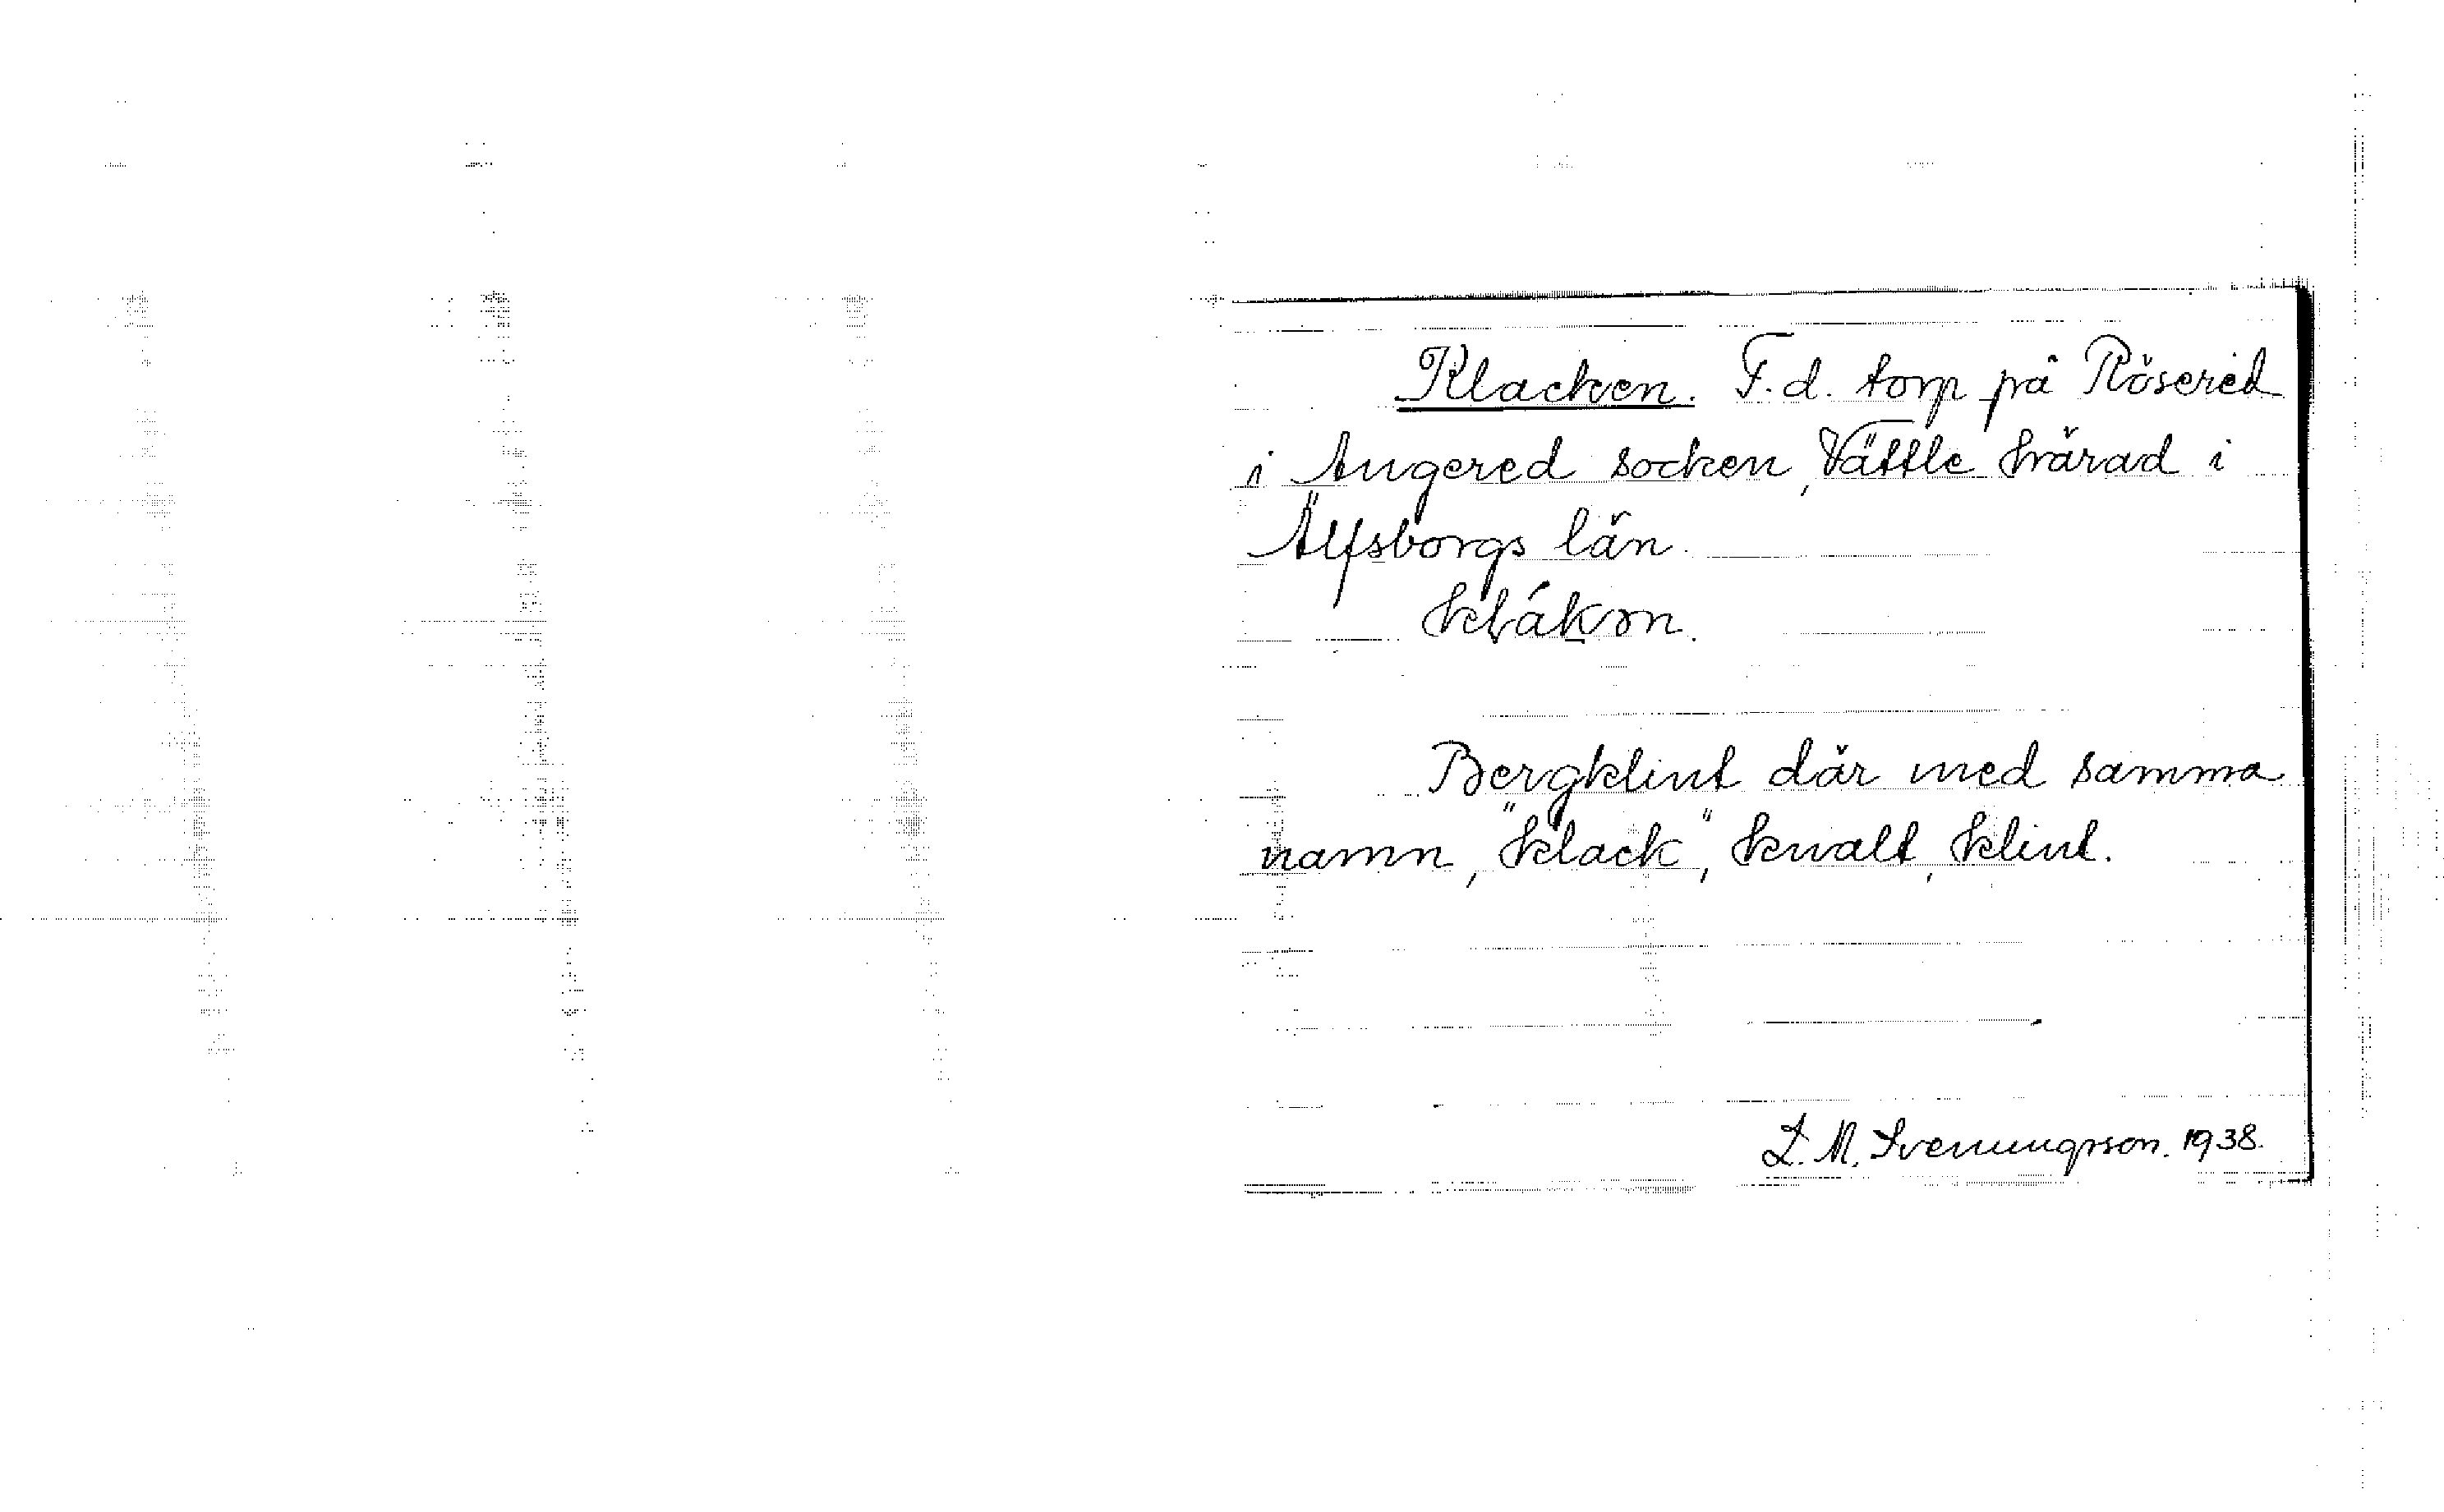 Klacken. F.d. torp på Rösered
i Angered socken, Vättle härad i
Älfsborgs län.
klákon.
Bergklint där med samma
namn, "klack", knalt, klint.
L. M. Svenungsson. 1938.